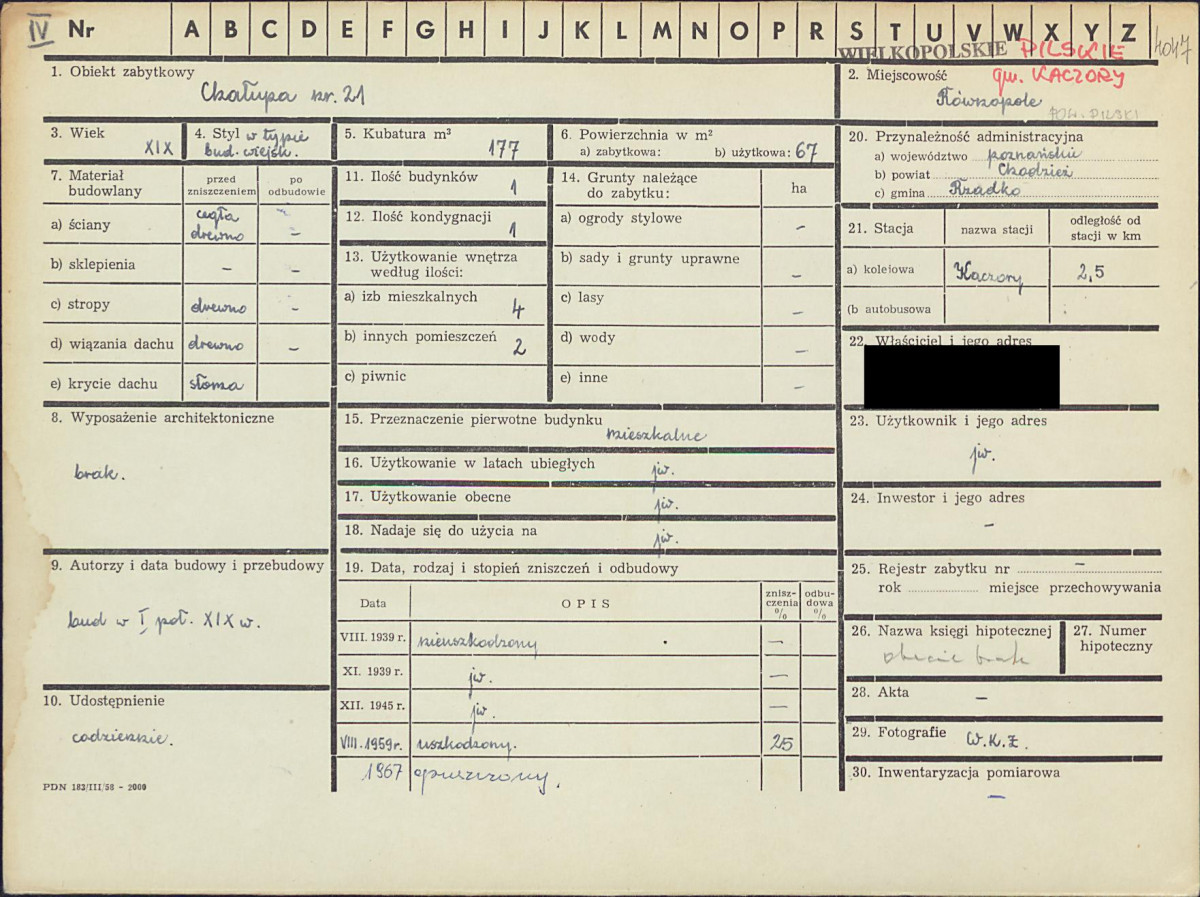 IV Nr A B C D E F G H I J K L M N O P R S T U V W X Y Z
WIELKOPOLSKIE PILSKIE 4047
gm. KACZORY
1. Obiekt zabytkowy
Chałupa nr. 21
2. Miejscowość
Równopole
POW. PILSKI
3. Wiek
XIX
4. Styl w typie
bud. wiejsk.
5. Kubatura m³
177
6. Powierzchnia w m²
a) zabytkowa: b) użytkowa: 67
7. Materiał budowlany
przed zniszczeniem
po odbudowie
a) ściany cegła –
drewno –
b) sklepienia – –
c) stropy drewno –
d) wiązania dachu drewno –
e) krycie dachu słoma
8. Wyposażenie architektoniczne
brak.
9. Autorzy i data budowy i przebudowy
bud w I poł. XIX w.
10. Udostępnienie
codziennie.
PDN 183/III/58 - 2000
11. Ilość budynków
1
12. Ilość kondygnacji
1
13. Użytkowanie wnętrza
według ilości:
a) izb mieszkalnych
4
b) innych pomieszczeń
2
c) piwnic
14. Grunty należące
do zabytku:
ha
a) ogrody stylowe –
b) sady i grunty uprawne –
c) lasy –
d) wody –
e) inne –
15. Przeznaczenie pierwotne budynku
mieszkalne
16. Użytkowanie w latach ubiegłych jw.
17. Użytkowanie obecne jw.
18. Nadaje się do użycia na jw.
19. Data, rodzaj i stopień zniszczeń i odbudowy
Data OPIS znisz-czenia % odbu-dowa %
VIII. 1939 r. nieuszkodzony —
XI. 1939 r. jw. —
XII. 1945 r. jw. —
VIII. 1959 r. uszkodzony. 25
1967 opuszczony.
20. Przynależność administracyjna
a) województwo poznańskie
b) powiat Chodzież
c) gmina Rzadko
21. Stacja nazwa stacji odległość od
stacji w km
a) kolejowa Kaczory 2,5
(b autobusowa
22. Właściciel i jego adres
23. Użytkownik i jego adres
jw.
24. Inwestor i jego adres
–
25. Rejestr zabytku nr –
rok miejsce przechowywania
26. Nazwa księgi hipotecznej
obecnie brak
27. Numer
hipoteczny
28. Akta –
29. Fotografie W.K.Z.
30. Inwentaryzacja pomiarowa
–